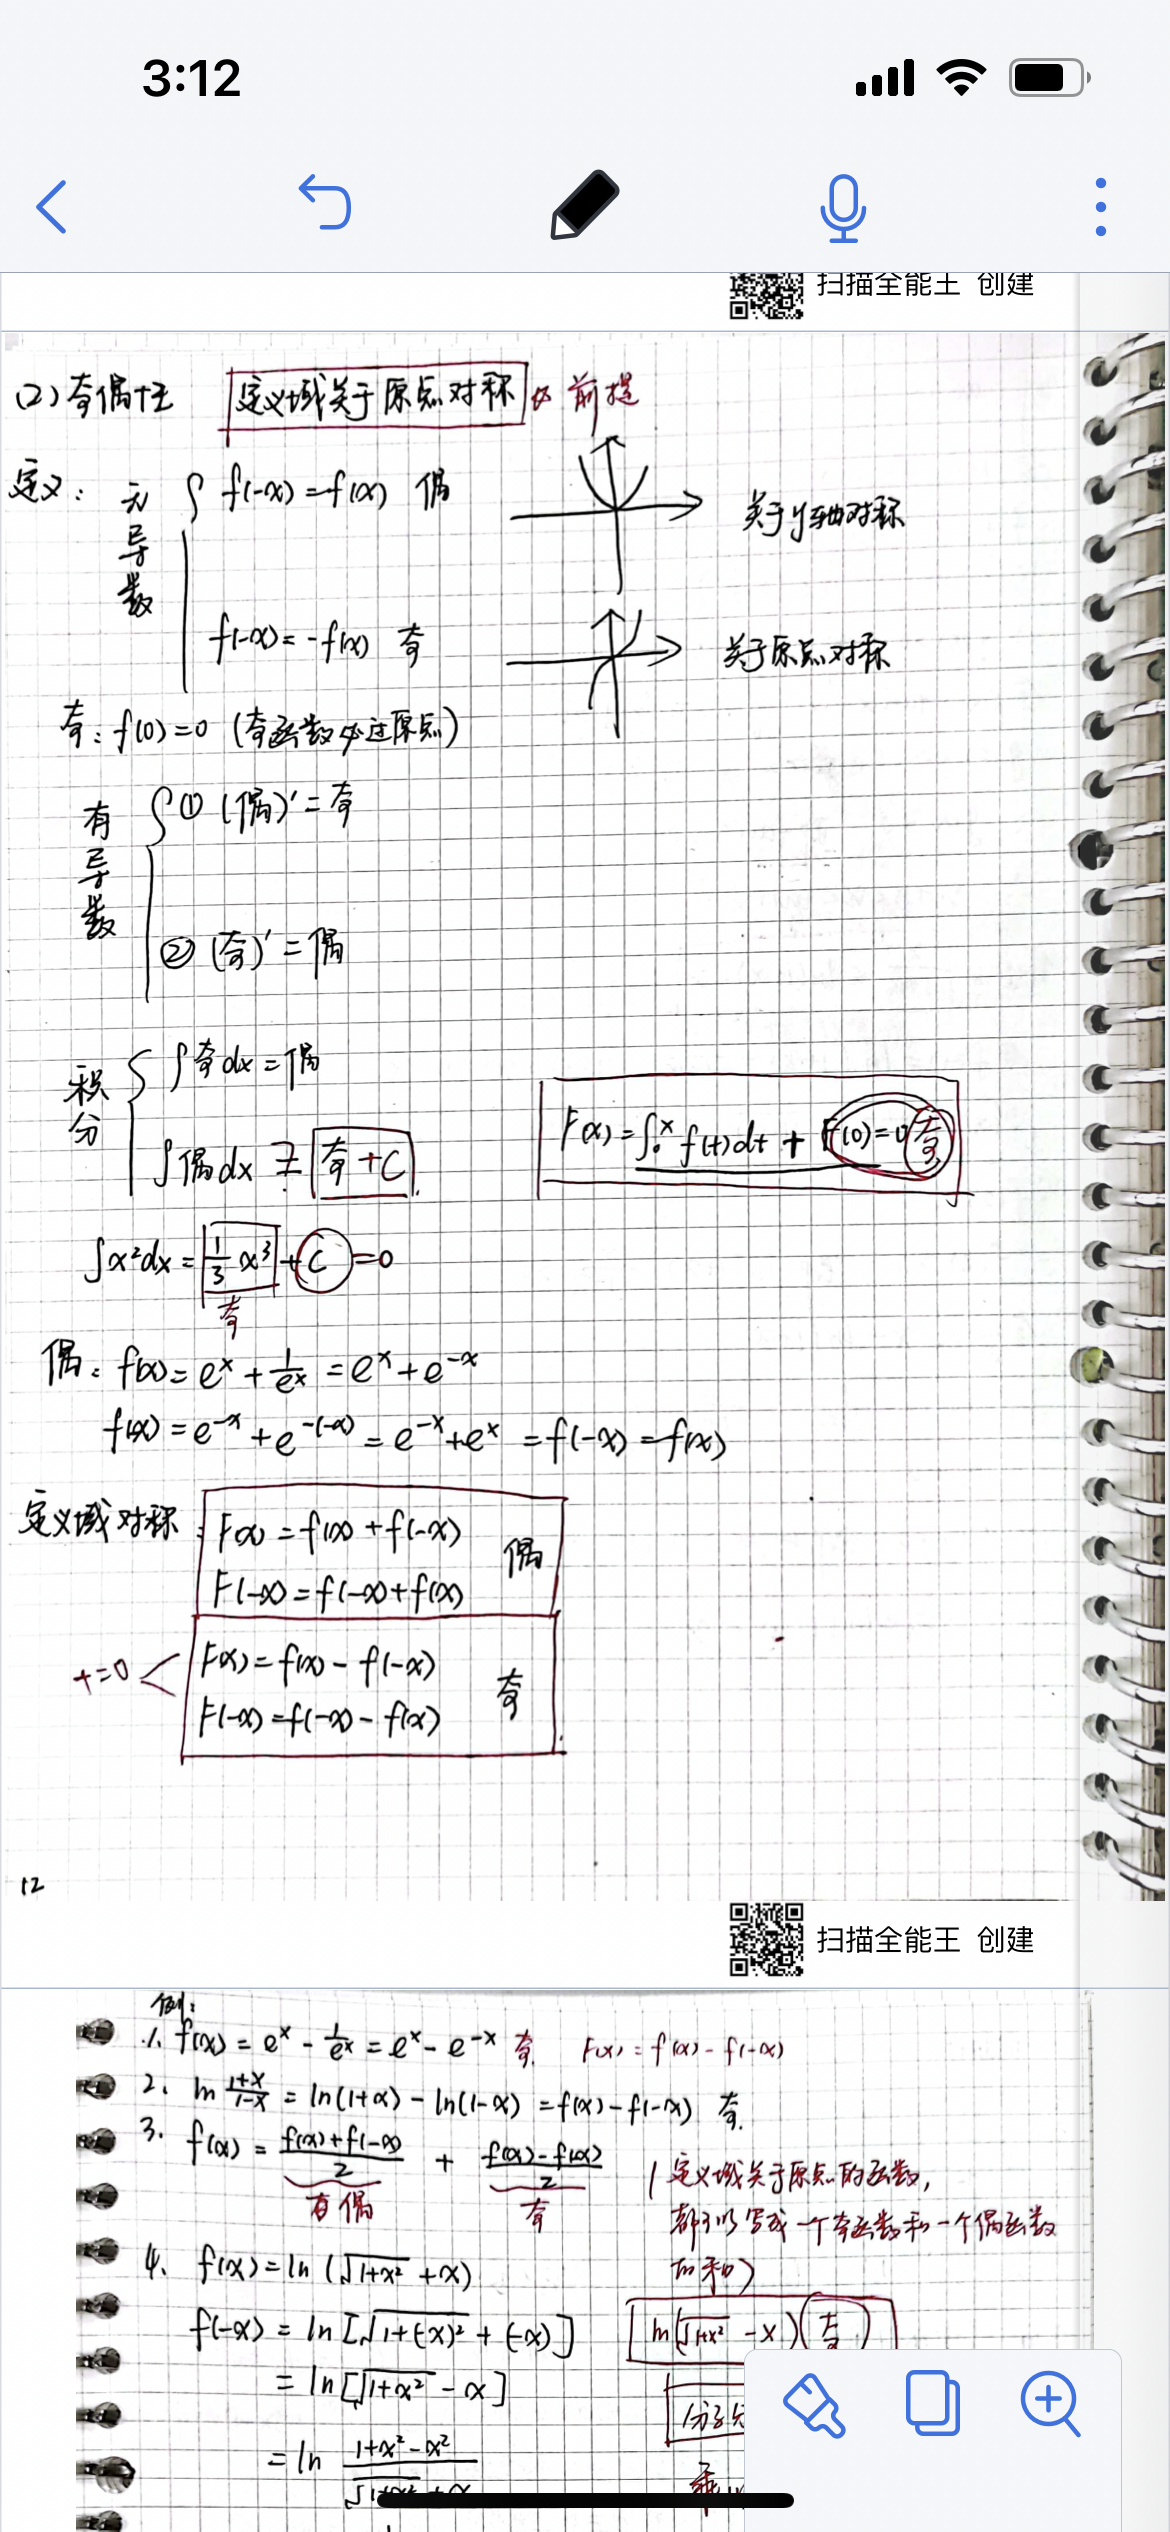 3:12
扫描全能王 创建
(2) 奇偶性 定义域关于原点对称 前提
定义: 无导数 f(-x)=f(x) 偶 关于y轴对称
f(-x)=-f(x) 奇 关于原点对称
奇: f(0)=0 (奇函数必过原点)
有导数 ① (偶)'=奇
② (奇)'=偶
积分 ∫奇dx=偶
∫偶dx 奇+C
F(x)=∫₀ˣ f(t)dt + F(0)=0 奇
∫x²dx=1/3 x³+C=0
奇
偶: f(x)=eˣ+1/eˣ=eˣ+e⁻ˣ
f(x)=e⁻ˣ+e^-(-x)=e⁻ˣ+eˣ=f(-x)=f(x)
定义域对称: F(x)=f(x)+f(-x) 偶
F(-x)=f(-x)+f(x)
+=0 F(x)=f(x)-f(-x) 奇
F(-x)=f(-x)-f(x)
12
扫描全能王 创建
例:
1. f(x)=eˣ-1/eˣ=eˣ-e⁻ˣ 奇. F(x)=f(x)-f(-x)
2. ln (1+x)/(1-x)=ln(1+x)-ln(1-x)=f(x)-f(-x) 奇.
3. f(x)=(f(x)+f(-x))/2 + (f(x)-f(x))/2
偶 奇
(定义域关于原点的函数,
都可以写成一个奇函数和一个偶函数
的和)
4. f(x)=ln(√(1+x²)+x)
f(-x)=ln[√(1+(-x)²)+(-x)]
ln(√(1+x²)-x) 奇
=ln[√(1+x²)-x]
=ln (1+x²-x²)/